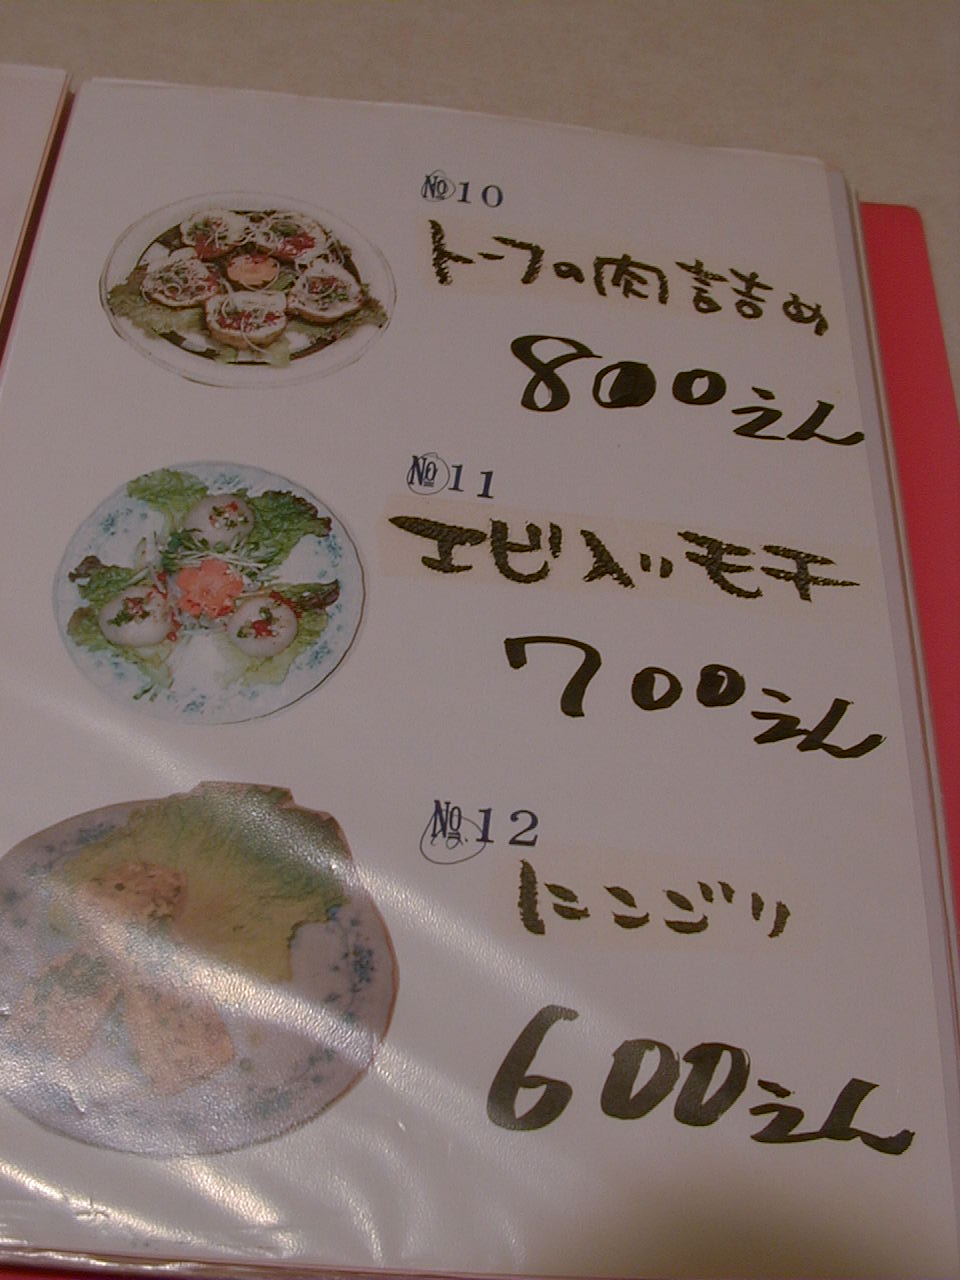 №10
トーフの肉詰め
800えん
№11
エビ入りモチ
700えん
№12
にこごり
600えん